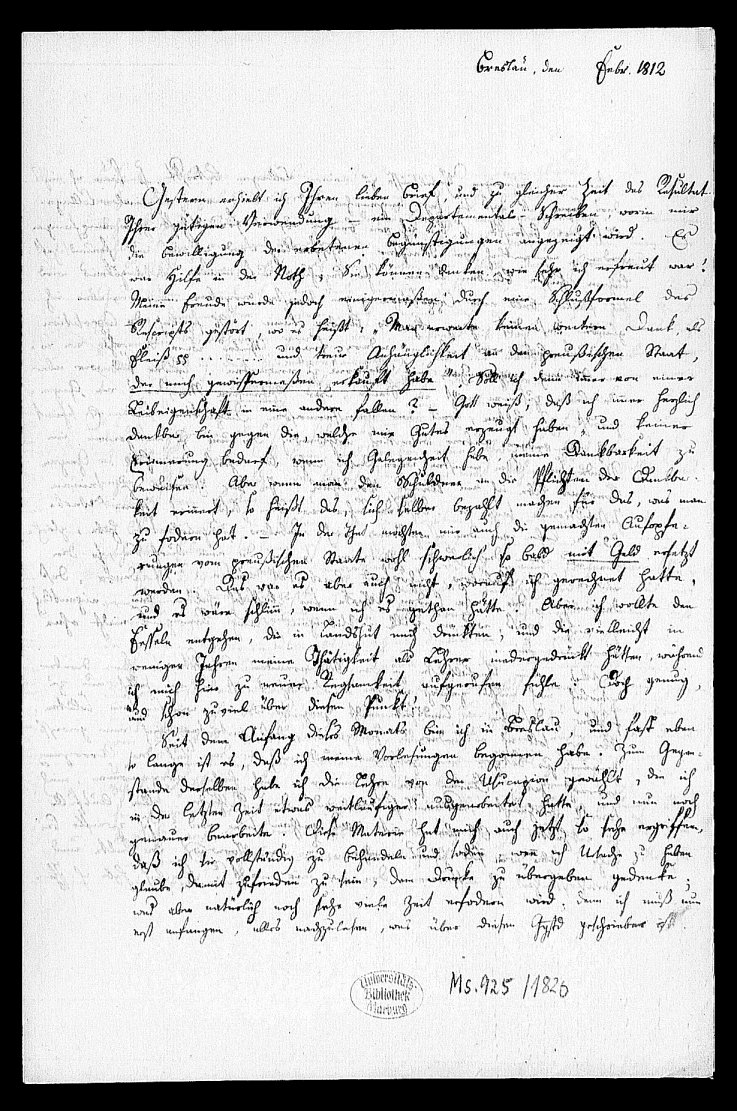 Breslau, den Febr. 1812
Gestern erhielt ich Ihren lieben Brief, und zu gleicher Zeit das Resultat
Ihrer gütigen Verwendung – ein Departemental-Schreiben, worin mir
die Bewilligung der erbetenen Begünstigungen angezeigt wird. Es
war Hilfe in der Noth; Sie können denken, wie sehr ich erfreut war!
Meine Freude wurde jedoch einigermaßen durch eine Schlußformel des
Rescripts gestört, wo es heißt: „Man erwarte keinen weitern Dank, als
Fleiß pp ....... und treue Anhänglichkeit an den preußischen Staat,
der mich gewissermaßen erkauft habe". Soll ich denn immer von einer
Leibeigenschaft in eine andere fallen? – Gott weiß, daß ich immer herzlich
dankbar bin gegen die, welche mir Gutes erzeugt haben, und keiner
Erinnerung bedarf, wenn ich Gelegenheit habe, meine Dankbarkeit zu
beweisen. Aber wenn man den Schuldner an die Pflichten der Dankbar-
keit erinnert, so heißt das, sich selber bezahlt machen für das, was man
zu fodern hat. – In der That möchten mir auch die gemachten Aufopfe-
rungen vom preußischen Staate wohl schwerlich so bald mit Geld ersetzt
werden. Das war es aber auch nicht, worauf ich gerechnet hatte,
und es wäre schlimm, wenn ich es gethan hätte. Aber ich wollte den
Fesseln entgehen, die in Landshut mich drückten, und die vielleicht in
weniger Jahren meine Thätigkeit als Lehrer niedergedrückt hätten, während
ich mich hier zu neuer Regsamkeit aufgerufen fühle. Doch genug,
und schon zuviel über diesen Punkt.
Seit dem Anfang dieses Monats bin ich in Breslau, und fast eben
so lange ist es, daß ich meine Vorlesungen begonnen habe. Zum Gegen-
stande derselben habe ich die Lehre von der Usucapion gewählt, die ich
in der letzten Zeit etwas weitläufiger ausgearbeitet hatte, und nun noch
genauer bearbeite. Diese Materie hat mich auch jetzt so sehr ergriffen,
daß ich sie vollständig zu behandeln und sodann, wenn ich Ursache zu haben
glaube, damit zufrieden zu sein, dem Drucke zu übergeben gedenke;
was aber natürlich noch sehr viele Zeit erfodern wird; denn ich muß nun
erst anfangen, alles nachzulesen, was über diesen Ggstd geschrieben ist.
Universitäts
Bibliothek
Marburg
Ms. 925/1826